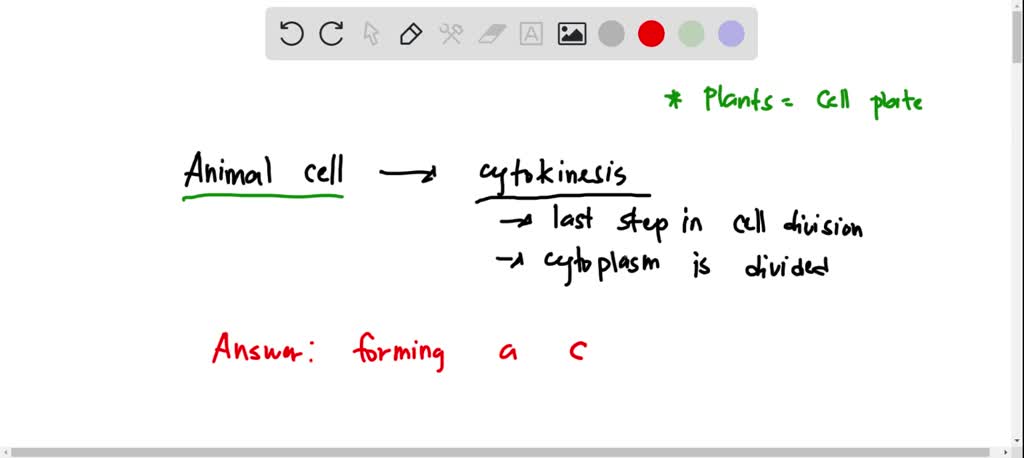 * Plants = Cell plate
Animal cell → cytokinesis
→ last step in cell division
→ cytoplasm is divided
Answer: forming a c